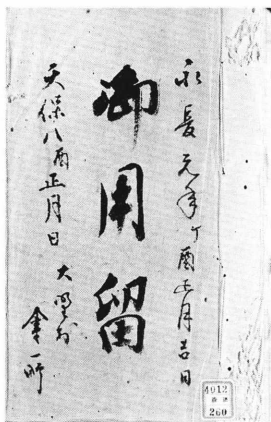 永長元年丁酉正月吉日
御用留
天保八酉正月日
4012
260